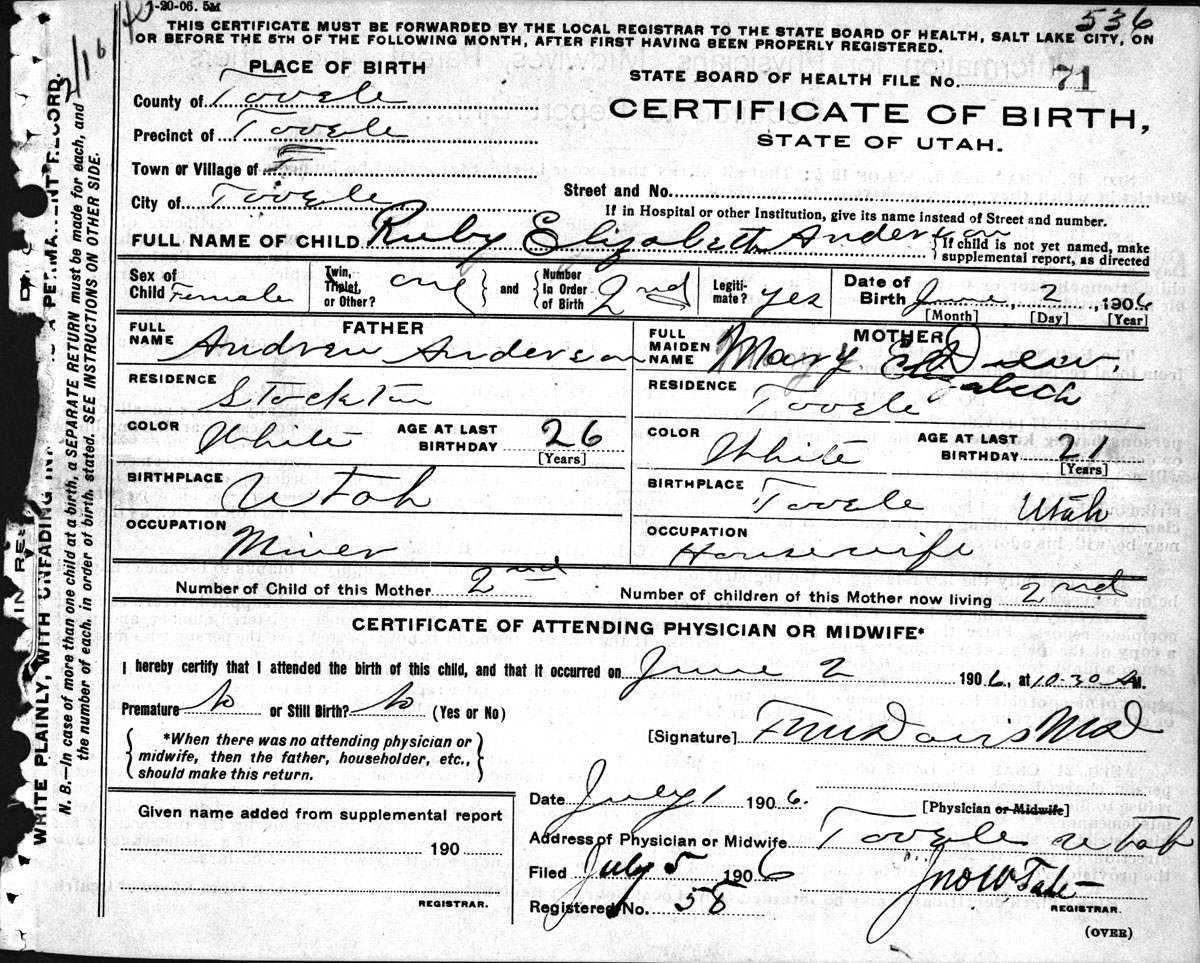 -20-06. 5M
536
THIS CERTIFICATE MUST BE FORWARDED BY THE LOCAL REGISTRAR TO THE STATE BOARD OF HEALTH, SALT LAKE CITY, ON
OR BEFORE THE 5TH OF THE FOLLOWING MONTH, AFTER FIRST HAVING BEEN PROPERLY REGISTERED.
PLACE OF BIRTH
STATE BOARD OF HEALTH FILE NO. 71
County of Tooele
CERTIFICATE OF BIRTH,
Precinct of Tooele
STATE OF UTAH.
Town or Village of
Street and No.
City of Tooele
If in Hospital or other Institution, give its name instead of Street and number.
FULL NAME OF CHILD Ruby Elizabeth Anderson
{ If child is not yet named, make
supplemental report, as directed
Sex of Child Female
Twin, Triplet, or Other? one } and { Number In Order of Birth 2nd
Legitimate? yes
Date of Birth June 2, 1906
[Month] [Day] [Year]
FATHER
FULL NAME Andrew Anderson
MOTHER
FULL MAIDEN NAME Mary Elizabeth
RESIDENCE Stockton
RESIDENCE Tooele
COLOR White AGE AT LAST BIRTHDAY 26
[Years]
COLOR White AGE AT LAST BIRTHDAY 21
[Years]
BIRTHPLACE Utah
BIRTHPLACE Tooele Utah
OCCUPATION Miner
OCCUPATION Housewife
Number of Child of this Mother 2nd
Number of children of this Mother now living 2nd
CERTIFICATE OF ATTENDING PHYSICIAN OR MIDWIFE*
I hereby certify that I attended the birth of this child, and that it occurred on June 2 1906, at 10.30 A M.
Premature No or Still Birth? No (Yes or No)
{ *When there was no attending physician or
midwife, then the father, householder, etc.,
should make this return. }
[Signature] Davis MD
[Physician or Midwife]
Date July 1 1906.
Given name added from supplemental report
190
REGISTRAR.
Address of Physician or Midwife Tooele Utah
Filed July 5 1906
Jno W Tate
REGISTRAR.
Registered No. 58
(OVER)
WRITE PLAINLY, WITH UNFADING INK PERMANENT RECORD
N. B.—In case of more than one child at a birth, a SEPARATE RETURN must be made for each, and
the number of each, in order of birth, stated. SEE INSTRUCTIONS ON OTHER SIDE.